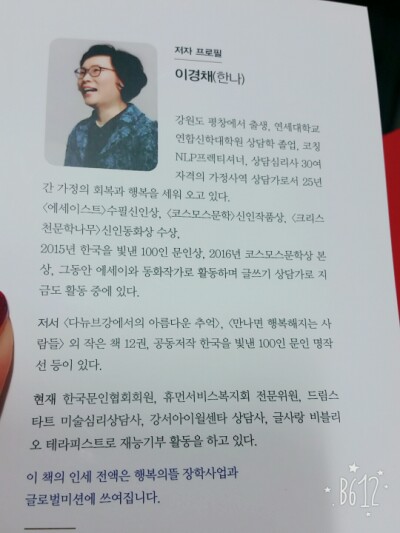 저자 프로필
이경채(한나)
강원도 평창에서 출생, 연세대학교
연합신학대학원 상담학 졸업, 코칭
NLP프렉티셔너, 상담심리사 30여
자격의 가정사역 상담가로서 25년
간 가정의 회복과 행복을 세워 오고 있다.
〈에세이스트〉수필신인상, 〈코스모스문학〉신인작품상, 〈크리스
천문학나무〉신인동화상 수상,
2015년 한국을 빛낸 100인 문인상, 2016년 코스모스문학상 본
상, 그동안 에세이와 동화작가로 활동하며 글쓰기 상담가로 지
금도 활동 중에 있다.
저서 〈다뉴브강에서의 아름다운 추억〉, 〈만나면 행복해지는 사
람들〉 외 작은 책 12권, 공동저작 한국을 빛낸 100인 문인 명작
선 등이 있다.
현재 한국문인협회회원, 휴먼서비스복지회 전문위원, 드림스
타트 미술심리상담사, 강서아이윌센타 상담사, 글사랑 비블리
오 테라피스트로 재능기부 활동을 하고 있다.
이 책의 인세 전액은 행복의뜰 장학사업과
글로벌미션에 쓰여집니다.
B612